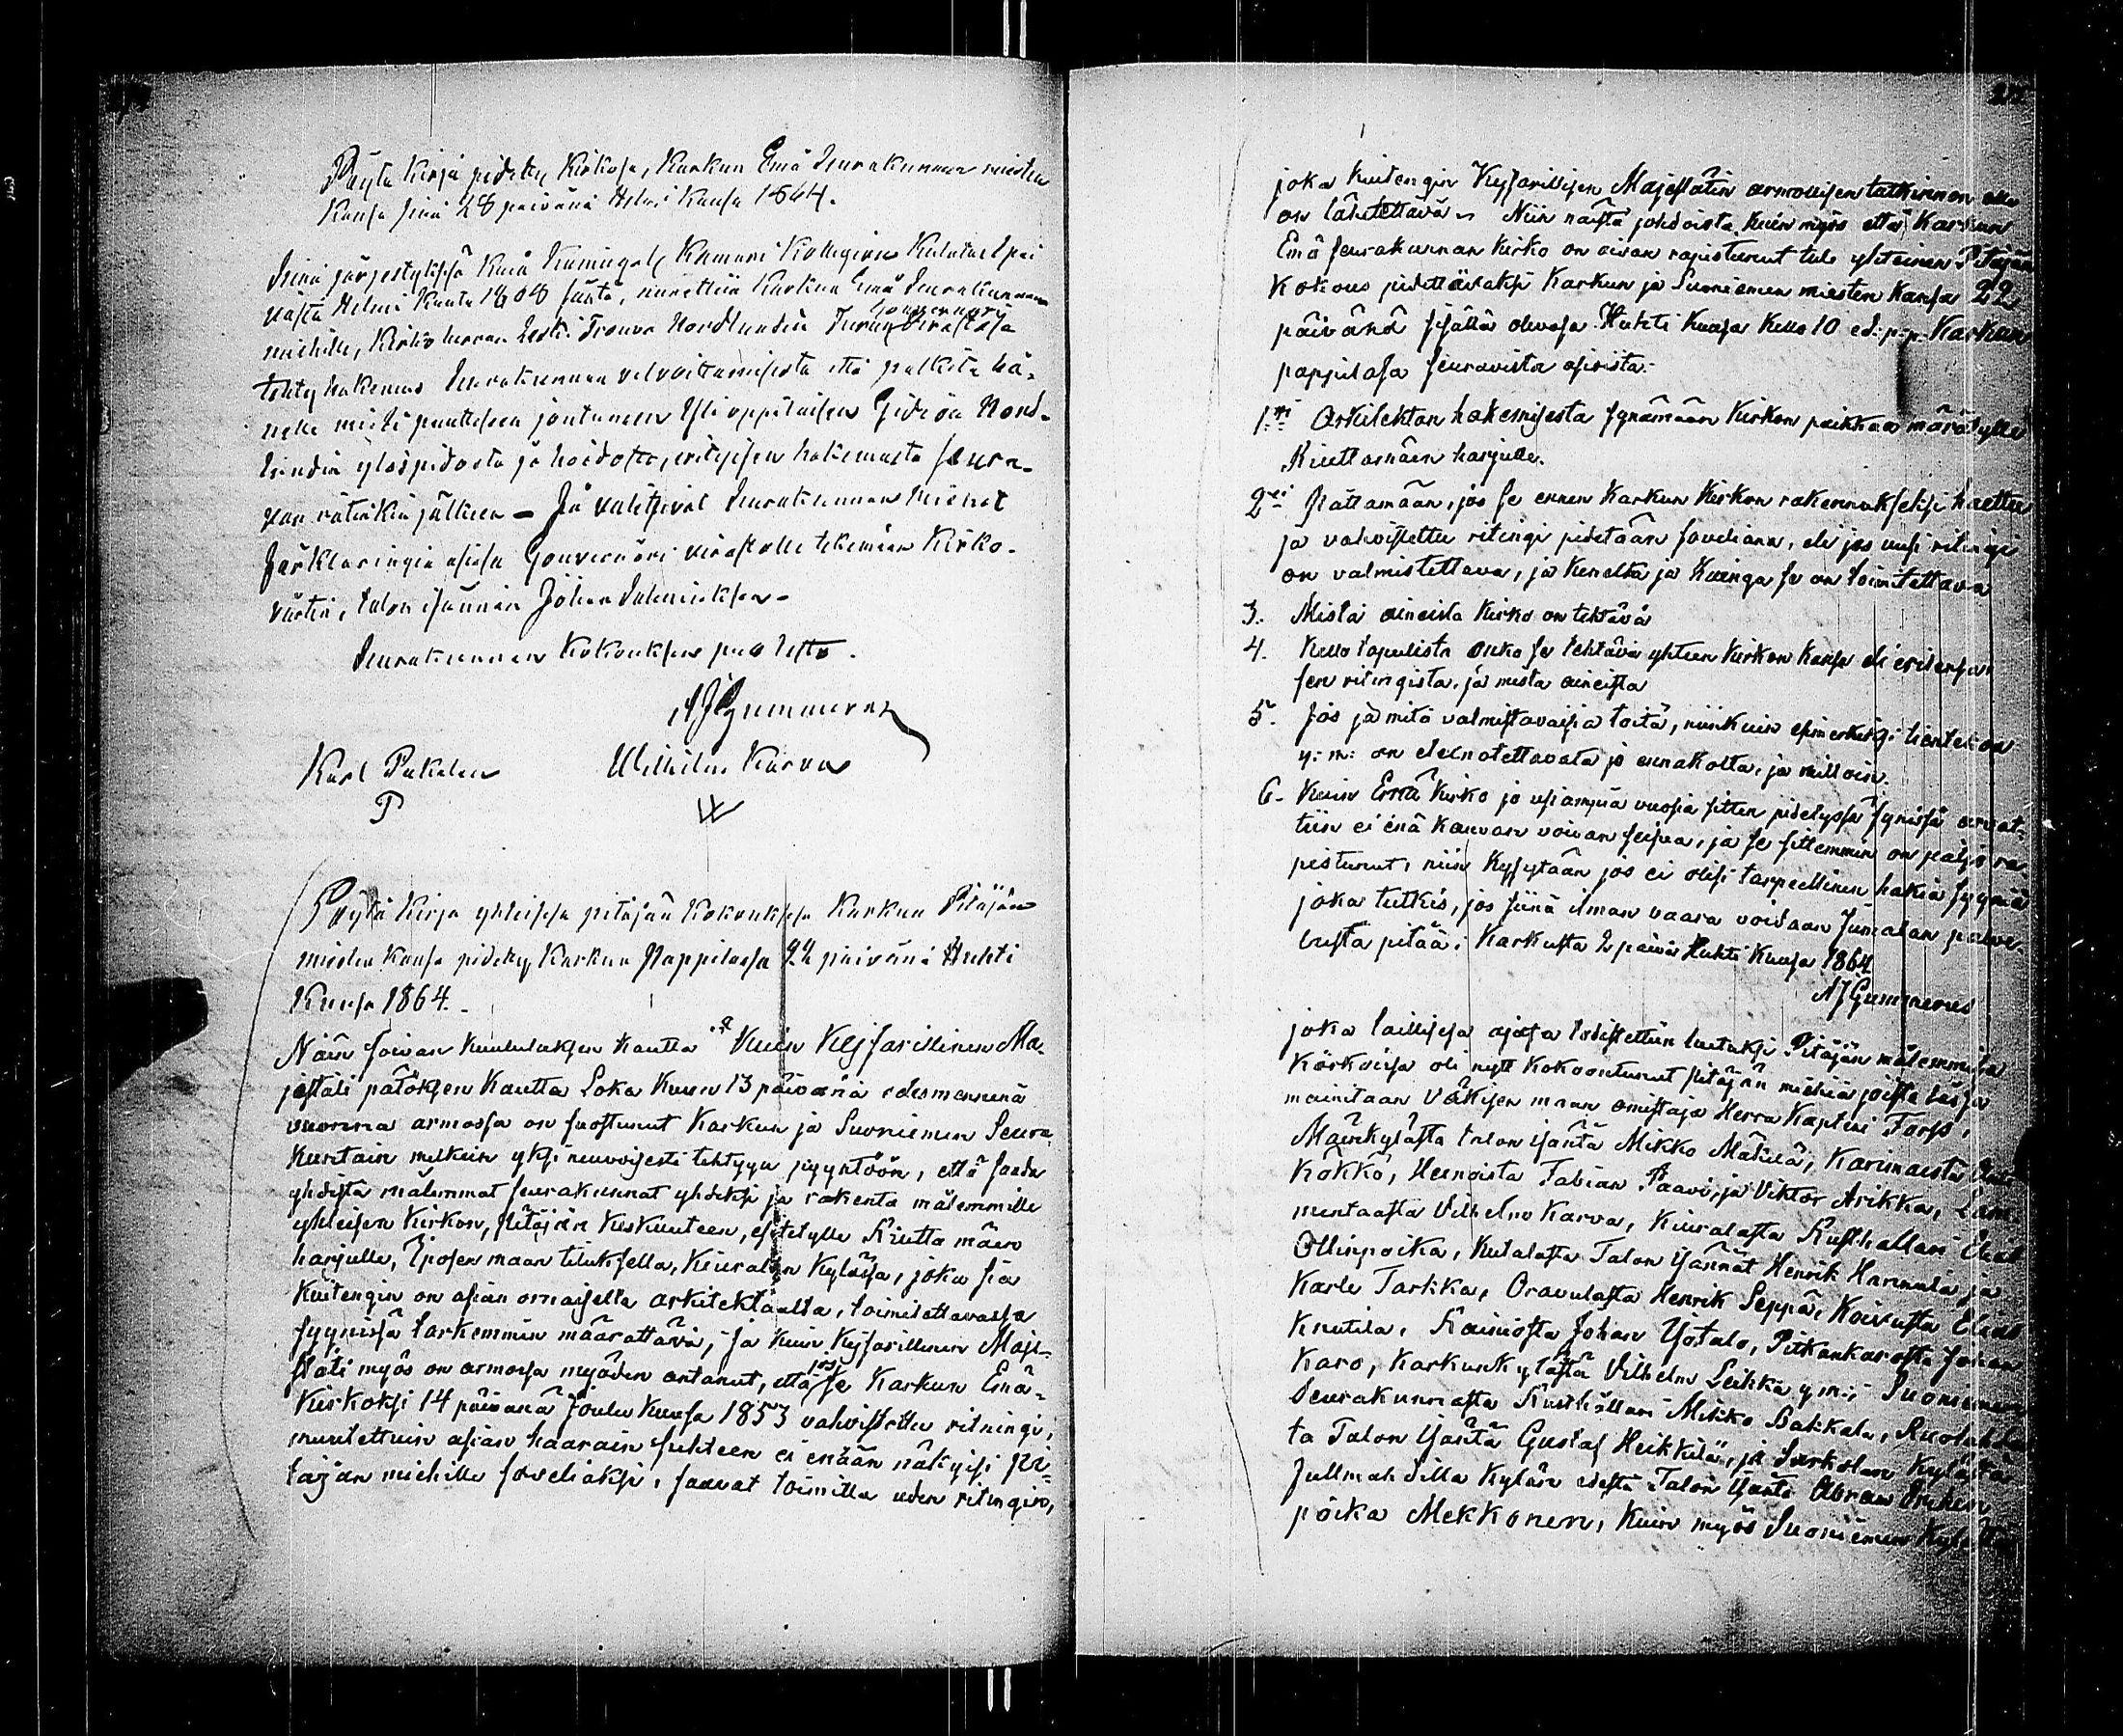 Pöytä Kirja pidetty Kirkosa, Karkun Emä Seurakunnan miesten
Kansa sinä 28 päivänä Helmi Kuusa 1864.
Siinä järjestyksessä kuin Kuningal: Kamari Kollegiun Kuulutus
vasta Helmi Kuuta 1808 säätä, neuvottiin Karkun Emä Seurakunnan
miehille, Kirkoherran Leski Frouva Nordlundin Turun Gouvernörj Virastossa
tehty hakemus Seurakunnan velvoittamisesta että palkita hä-
nelle mieli puutteseen joutuneen Yli oppilaisen Gideon Nord-
lundin ylöspidosta ja hoidosta, erityisen hakemusta seura-
van rätinkin jälkeen – Ja valitsivat Seurakunnan Miehet
Förklaringin asiasa Gouvernöri virastolle tekemään Kirko-
värtin, talon isännän Johan
Seurakunnan Kokouksen puolesta.
AJGummerus
Karl Pukalan Wilhelm Karva
P W
Pöytä Kirja yhteisessä pitäjän Kokouksessa Karkun Pitäjän
miesten Kansa pidetty Karkun Pappilassa 22 päivänä Huhti
Kuusa 1864.
Näin soivan kuulutuksen kautta "Kuin Keisarillinen Ma-
jestäti pätöksen Kautta Loka Kuun 13 päivänä edesmennenä
vuonna armossa on suostunut Karkun ja Suoniemen Seura-
kuntain melkein yksi neuvoisesti tehtyyn pyyntöön, että saada
yhdistä molemmat seurakunnat yhdeksi ja rakenta molemmille
yhteisen Kirkon, Pitäjän Keskuuteen, esitetylle Riutta mäen
harjulle, Iposen maan tiluksella, Kiuralan Kylässä, joka sia
Kuitengin on asian omaiselta arkitektäälta, toimitettavassa
syynissä tarkemmin määrättävä, ja kuin Keisarillinen Maje-
stäti myös on armossa myöden antanut, että jos se Karkun Emä-
Kirkoksi 14 päivänä Joulu Kuusa 1853 vahvistettu ritningi,
muutettuin asian haarain suhteen ei enään näkyisi pi-
täjän miehille soveliaksi, saavat toimitta uden ritingin,
joka kuitengin Keysarillisen Majestätin armollisen tutkinnon alle
on lähetettävä. Niin näistä johdoista, kuin myös että Karkun
Emä seurakunnan Kirko on aivan rapistunut tule yhteinen Pitäjän
Kokous pidettäväksi Karkun ja Suoniemen miesten kansa 22
päivänä sisällä olevasa Huhti Kuusa Kello 10 ed: p:p: Karkun
pappilasa seuravista asioista:-
1:ksi Arkitektan hakemisesta synämään Kirkon paikkaa määrätylle
Riuttamäen harjulle.
2:ksi Päättämään, jos se ennen Karkun Kirkon rakennukseksi haettu
ja vahvistettu ritingi pidetään soveliana, eli jos uusi ritingi
on valmistettava, ja keneltä ja kuinga se on toimitettava
3. Mistä aineista Kirko on tehtävä
4. Kello tapulista onko se tehtävä yhteen Kirkon kansa eli eritensä,
sen ritingistä, ja mistä aineista
5. Jos ja mitä valmistavaisia töitä, niinkuin esimerkiksi kiviteon
y: m: on edesotettavata jo ennakolta, ja milloin.
6. Kuin Emä Kirko jo usiampia vuosia sitten pidetyssä synissä arvat-
tiin ei enä kauvan voivan seisoa, ja se sittemmin on paljo ra-
pistunut, niin kysytään jos ei olisi tarpeellinen hakia syyniä
joka tutkis, jos siinä ilman vaara voidaan Jumalan palve-
lusta pitää. Karkusta 2 päivä Huhti Kuusa 1864
AJGummerus
joka laillisesa ajasa todistettiin luetuksi Pitäjän molemmisa
Kirkoisa oli nytt kokoontunut pitäjän miehiä joista täsä
mainitaan Väkisen maan omistaja Herra Kapteni Forss,
Mäenkylästä talon isäntä Mikko Mätkä, Karimaesta
Kökkö, Heinoista Fabian Paavi, ja Viktor Arikka, Lam-
mentaasta Vilhelm Karva, Kiuralasta Rusthållari Elias
Ollinpoika, Kutalasta Talon Isännät Henrik Hannula ja
Karle Tarkka, Oravulasta Henrik Seppä, Koivusta Elias
Knutila, Rainiosta Johan Ylitalo, Pitkankarosta Johan
Karo, Karkunkylästä Vilhelm Leikka y:m:, Suoniemen
Seurakunnasta Rusthållari Mikko Pakkala, Ruolahdes-
ta Talon Isäntä Gustaf Heikkilä, ja Sarkolan Kylästä
Jullmah Silla Kylän edestä Talon Isäntä Abram
poika Mekkonen, Kuin myös Suoniemen Kylästä